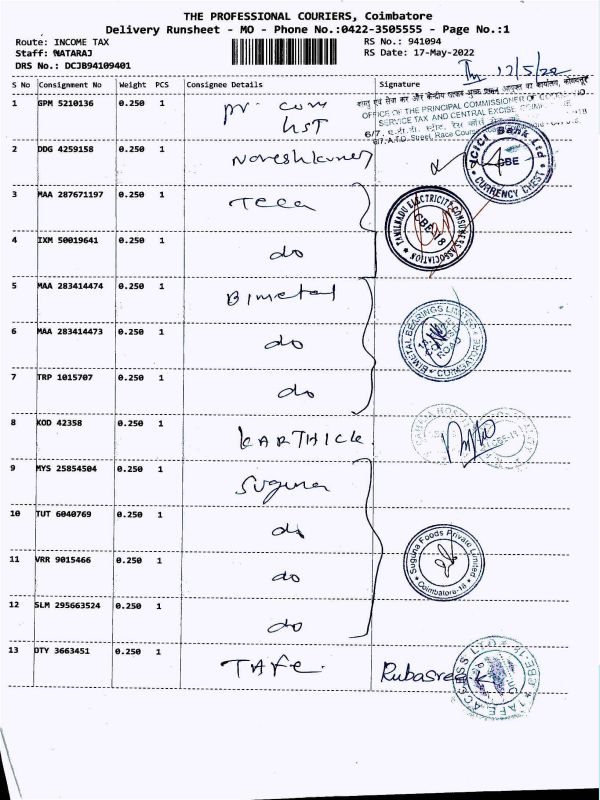 THE PROFESSIONAL COURIERS, Coimbatore
Delivery Runsheet - MO - Phone No.:0422-3505555 - Page No.:1
Route: INCOME TAX
RS No.: 941094
Staff: %NATARAJ
RS Date: 17-May-2022
DRS No.: DCJB94109401
17/5/22
S No Consignment No Weight PCS Consignee Details Signature
1 GPM 5210136 0.250 1 pr. com
GST
OFFICE OF THE PRINCIPAL COMMISSIONER OF
SERVICE TAX AND CENTRAL EXCISE
6/7, A.T.D. Street, Race Course
2 DDG 4259158 0.250 1 Nareshkumar
ICICI Bank Ltd
CBE
* CURRENCY CHEST *
3 MAA 287671197 0.250 1 Teca
TAMILNADU ELECTRICITY CONSUMERS ASSOCIATION
CBE-18
4 IXM 50019641 0.250 1 do
5 MAA 283414474 0.250 1 Bimetal
BIMETAL BEARINGS LIMITED
ROAD
* COIMBATORE *
6 MAA 283414473 0.250 1 do
7 TRP 1015707 0.250 1 do
8 KOD 42358 0.250 1 KARTHICK.
9 MYS 25854504 0.250 1 Suguna
10 TUT 6040769 0.250 1 do
Suguna Foods Private Limited
* Coimbatore-18 *
11 VRR 9015466 0.250 1 do
12 SLM 295663524 0.250 1 do
13 OTY 3663451 0.250 1 TAFE. Rubasree.K
TAFE ACCESS LTD
CBE-18